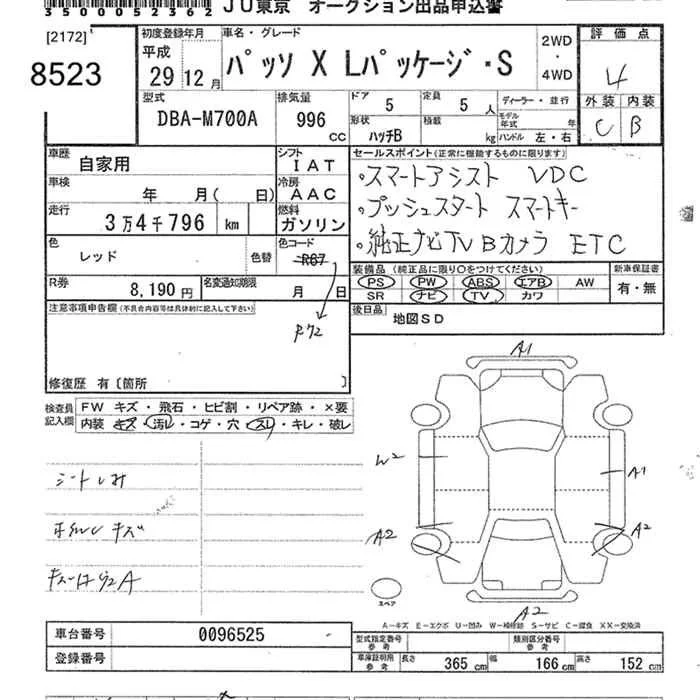 3500052362 JU東京 オークション出品申込書
[2172]
8523
初度登録年月
平成
29 12月
車名・グレード
パッソ X Lパッケージ・S
2WD
・
4WD
評価点
4
外装 内装
C B
型式
DBA-M700A
排気量
996 CC
ドア 5
定員 5 人
形状 ハッチB
積載 kg
ディーラー・並行
モデル年式 年
ハンドル 左・右
車歴
自家用
シフト
IAT
車検
年 月( 日)
冷房
AAC
走行
3万4千796 km
燃料
ガソリン
色
レッド
色替
色コード
R67
R72
R券
8,190円
名変通知期限
月 日
セールスポイント(正常に機能するものに限ります)
・スマートアシスト VDC
・プッシュスタート スマートキー
・純正ナビTV Bカメラ ETC
装備品(純正品に限り○をつけてください)
PS PW ABS エアB AW
SR ナビ TV カワ
新車保証書
有・無
後日品 地図SD
注意事項申告欄(不具合内容等は具体的に記入して下さい)
修復歴 有〔箇所 〕
検査員記入欄
FW キズ・飛石・ヒビ割・リペア跡・×要
内装 キズ・汚レ・コゲ・穴・スレ・キレ・破レ
シートしみ
A1
W2
A1
A2
A2
A2
スペア
A-キズ E-エクボ U-凹み W-補修跡 S-サビ C-腐食 XX-交換済
車台番号 0096525
登録番号
型式指定番号 参考
類別区分番号 参考
車庫証明用 参考
長さ 365 cm 幅 166 cm 高さ 152 cm